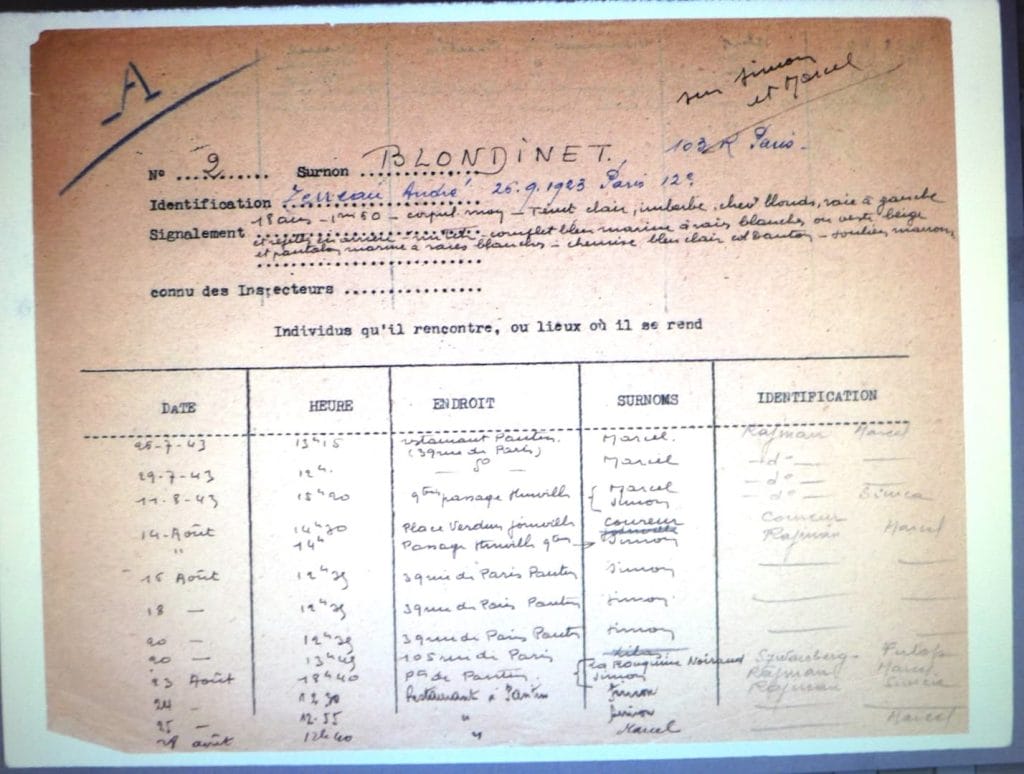 A
sur Simon
et Marcel
103 R Paris -
N° 2 Surnon BLONDINET.
Identification Terreau André 25.9.1923 Paris 12e
18 ans - 1m60 - corpul moy - Teint clair, imberbe, chevx blonds, raie à gauche
Signalement et rejetés en arrière - complet bleu marine à raies blanches ou veste beige
et pantalon marine à raies blanches - chemise bleu clair col Danton - souliers marrons
connu des Inspecteurs
Individus qu'il rencontre, ou lieux où il se rend
DATE HEURE ENDROIT SURNOMS IDENTIFICATION
26-7-43 13h15 restaurant Pantin Marcel. Rajman Marcel
(39 rue de Paris)
29-7-43 12h. - do - Marcel - do -
11-8-43 15h20 9ter passage Hunville Marcel - do -
Simon - do - Simon
14-Août 14h30 Place Verdun Joinville Coureur Coureur
" 14h Passage Hunville 9ter Simon Rajman Marcel
15 Août 12h35 39 rue de Paris Pantin Simon
18 - 12h35 39 rue de Paris Pantin Simon
20 - 12h35 39 rue de Paris Pantin Simon
20 - 13h45 105 rue de Paris La Rouquine Noiraud Szwarcberg - Fulop
23 Août 18h40 Pte de Pantin Simon Rajman Marcel
24 - 12.30 Restaurant à Pantin Simon Rajman Simon
25 - 12.55 " Simon
28 août 12h40 " Marcel Marcel